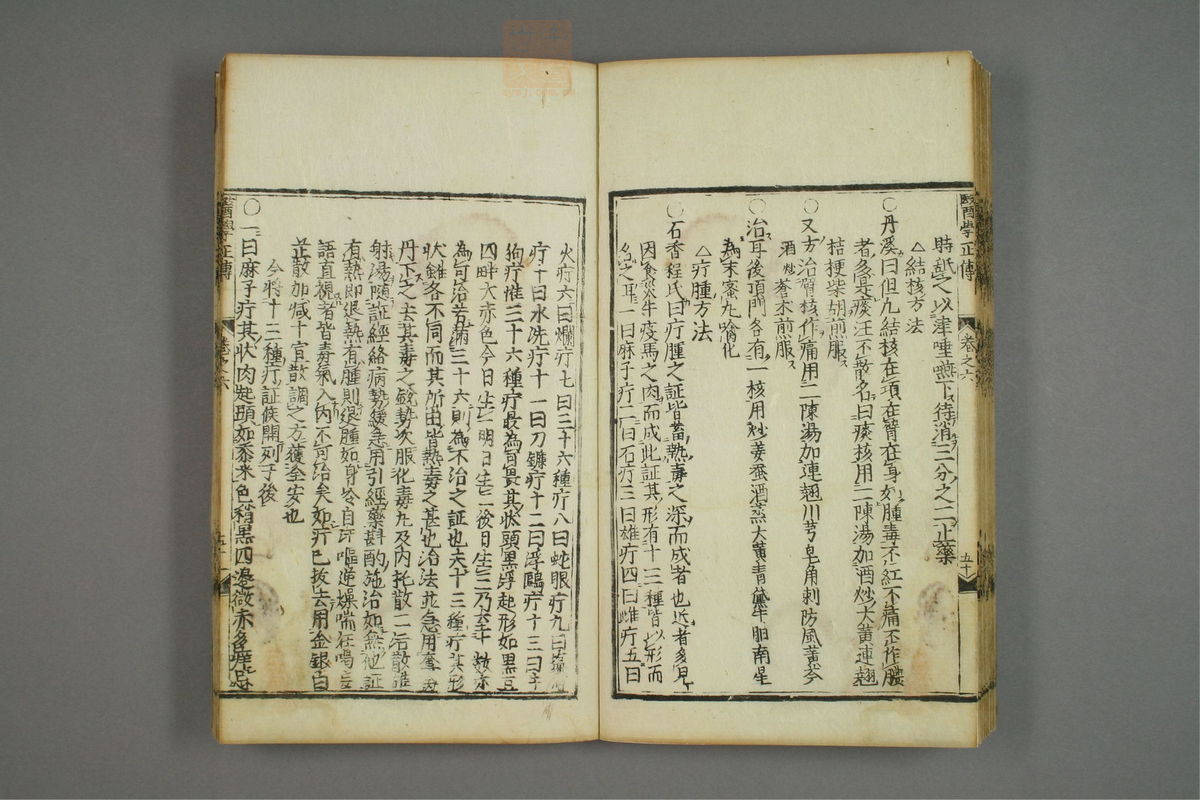 時舐之以津唾嚥下待消三分之二止藥
△結核方法
〇丹溪曰但凡結核在項在臂在身如腫毒不紅不痛不作膿
者多是痰汪不散名曰痰核用二陳湯加酒炒大黄連翹
桔梗柴胡煎服
〇又方治臂核作痛用二陳湯加連翹川芎皂角刺防風黄芩
酒炒蒼朮煎服
〇治耳後頂門各有一核用炒姜蚕酒蒸大黄青黛牛胆南星
為末蜜丸噙化
△疔腫方法
〇石香程氏曰疔腫之証皆蓄熱毒之深而成者也近者多見
因食炙牛疫馬之肉而成此証其形有十三種皆以形而
名之耳一曰麻子疔二曰石疔三曰雄疔四曰雌疔五曰
火疔六曰爛疔七曰三十六種疔八曰蛇眼疔九曰
疔十曰水洗疔十一曰刀鐮疔十二曰浮鷗疔十三曰
狗疔惟三十六種疔最為可畏其状頭黒浮起形如黒豆
四畔大赤色今日生一明日生二後日生三乃至十数亦
為可治若満三十六則為不治之証也夫十三種疔其形
状雖各不同而其所由皆熱毒之甚也治法并急用奪命
丹下之去其毒之鋭勢次服化毒丸及内托散二活散
射湯随証経絡病勢緩急用引經藥斟酌施治如無他証
有熱即退熱有腫則退腫如身冷自汗嘔逆燥喘狂喝妄
語直視者皆毒氣入内不可治矣如疔已抜去用金銀白
芷散加減十宣散調之方獲全安也
今将十三種疔証候開列于後
〇一曰麻子疔其状肉起頭如黍米色稍黒四邊微赤多痒忌
醫學正傳
卷之六
五十
醫學正傳
卷之六
五十一